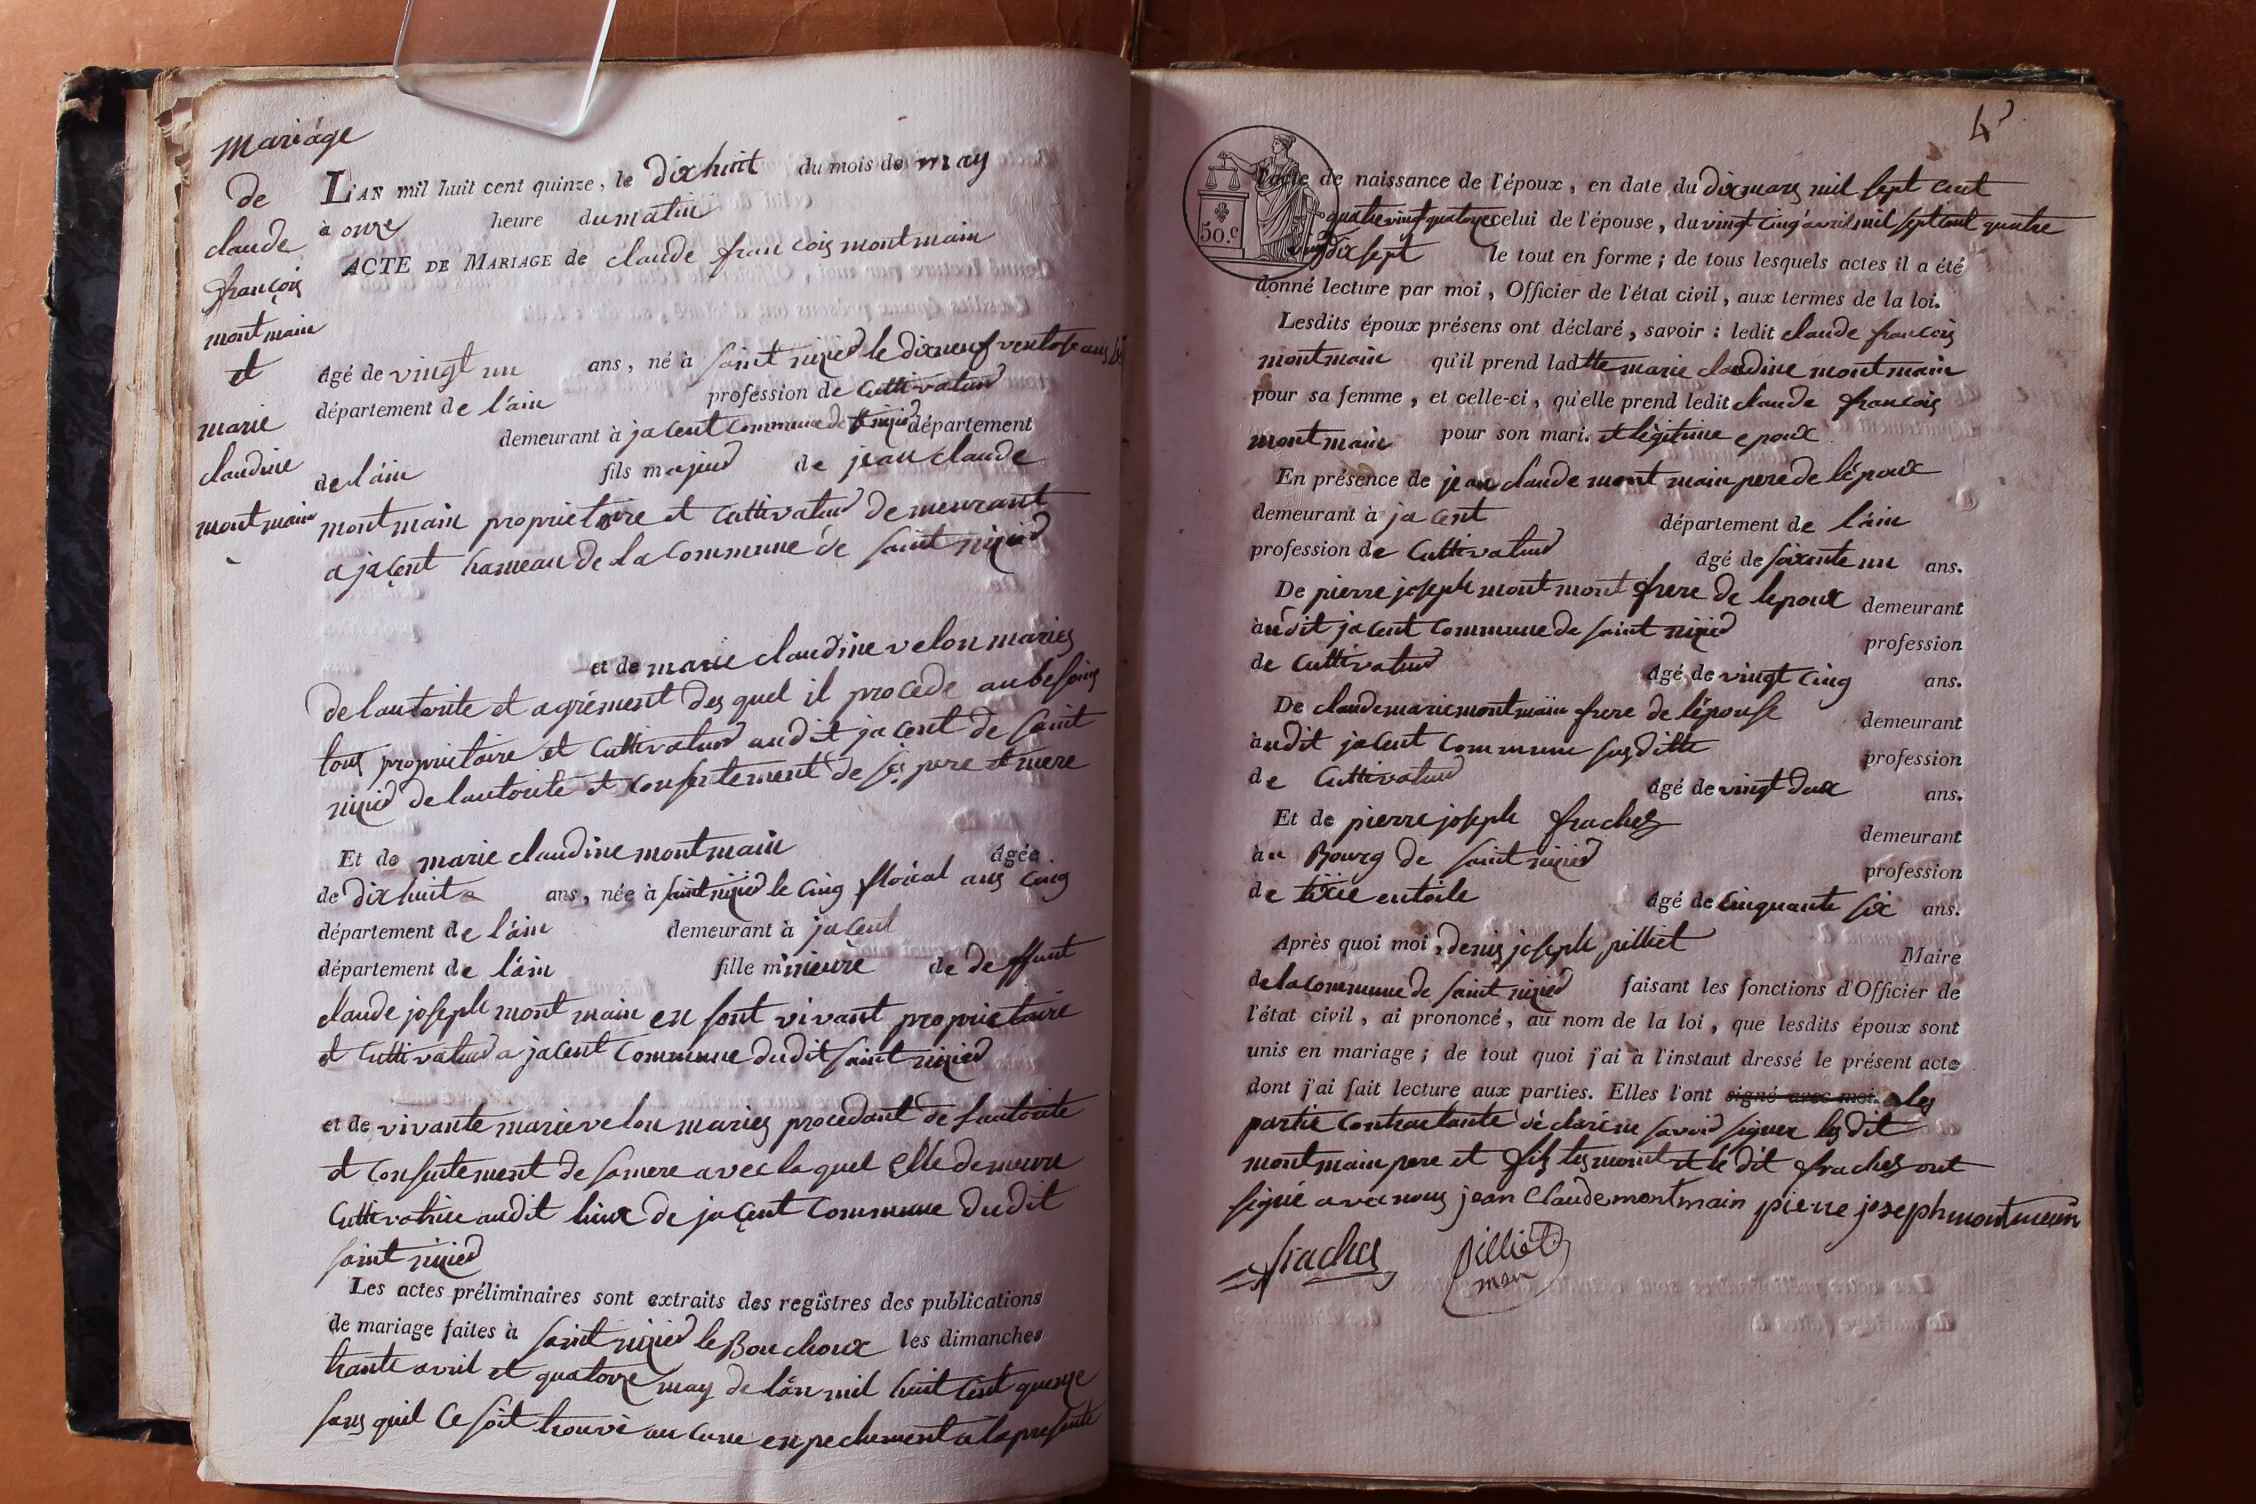 Mariage
de
claude
françois
montmain
et
marie
claudine
montmain
L'AN mil huit cent quinze, le dix huit du mois de may
à onze heure du matin
ACTE DE MARIAGE de claude francois montmain
âgé de vingt un ans, né à saint nizied le dixneuf ventose ans
département de l'ain profession de Cultivateur
demeurant à jacent commune de St nizied département
de l'ain fils majeur de jean claude
montmain proprietaire et Cultivateur demeurant
a jacent hameau de la commune de saint nizied
et de marie claudine velon mariés
de lautorité et agrément des quel il procede au besoins
tous proprietaire et Cultivateur audit jacent de saint
nizied de lautorité et consentement de ses pere et mere
Et de marie claudine montmain âgée
de dix huit ans, née à saint nizied le cinq floréal ans cinq
département de l'ain demeurant à jacent
département de l'ain fille mineure de deffunt
claude joseph mont main en sont vivant proprietaire
et Cultivateur a jacent Commune dudit saint nizied
et de vivante marie velon mariés procedant de lautorité
et consentement de sa mere avec la quel elle demeure
Cultivatrice audit lieux de jacent Commune dudit
saint nizied
Les actes préliminaires sont extraits des registres des publications
de mariage faites à saint nizied le Bouchoux les dimanches
trante avril et quatorze may de l'an mil huit cent quinze
sans quil ce soit trouvé aucune enpechement a la presente
43
50.c
l'acte de naissance de l'époux, en date du dix mars mil sept cent
quatre vingt quatorze celui de l'épouse, du vingt cinq avril mil sept cent quatre
vingt dix sept le tout en forme; de tous lesquels actes il a été
donné lecture par moi, Officier de l'état civil, aux termes de la loi.
Lesdits époux présens ont déclaré, savoir: ledit claude francois
montmain qu'il prend ladtte marie claudine montmain
pour sa femme, et celle-ci, qu'elle prend ledit claude francois
montmain pour son mari. et légitime epoux
En présence de jean claude mont main pere de l'époux
demeurant à jacent département de l'ain
profession de Cultivateur âgé de soixente un ans.
De pierre joseph mont mont frere de lepoux demeurant
àudit jacent Commune de saint nizied profession
de Cultivateur âgé de vingt cinq ans.
De claude marie montmain frere de l'épouse demeurant
àudit jacent commune susditte profession
de Cultivateur âgé de vingt deux ans.
Et de pierre joseph frachez demeurant
àu Bourg de saint nizied profession
de tixie en toile âgé de Cinquante six ans.
Après quoi moi, denis joseph pilliet Maire
de la commune de saint nizied faisant les fonctions d'Officier de
l'état civil, ai prononcé, au nom de la loi, que lesdits époux sont
unis en mariage; de tout quoi j'ai à l'instaut dressé le présent acte
dont j'ai fait lecture aux parties. Elles l'ont signé avec moi. les
partie Contractante déclaré ne savoir signer les dit
montmain pere et fils et le dit frachez ont
signé avec nous jean Claude montmain pierre joseph montmain
frachez Pilliet